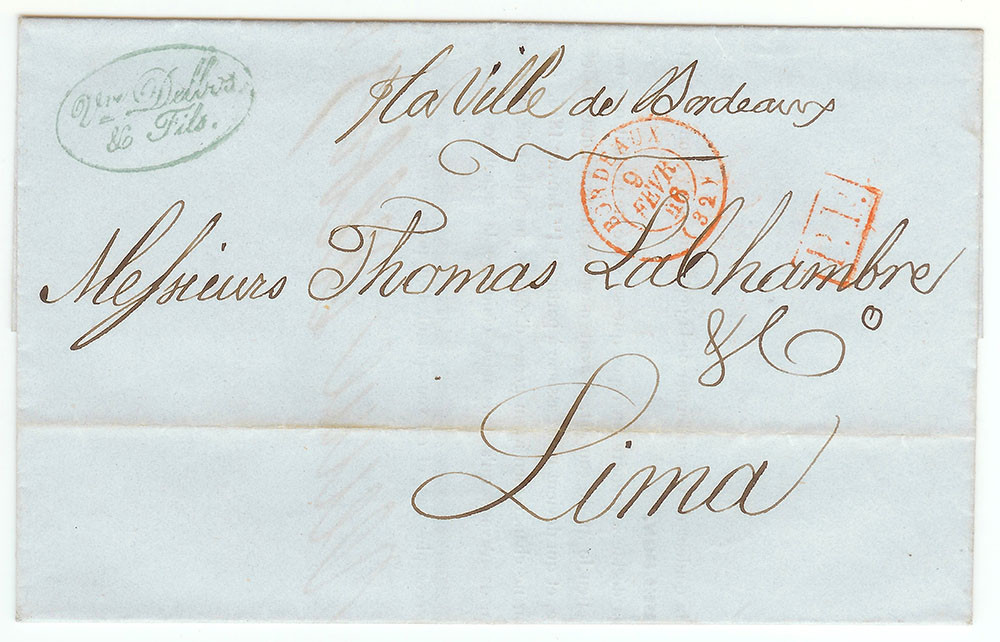 & Fils.
La Ville de Bordeaux
BORDEAUX
9
FÉVR.
(32)
P.P.
Messieurs Thomas LaChambre
& Co
Lima